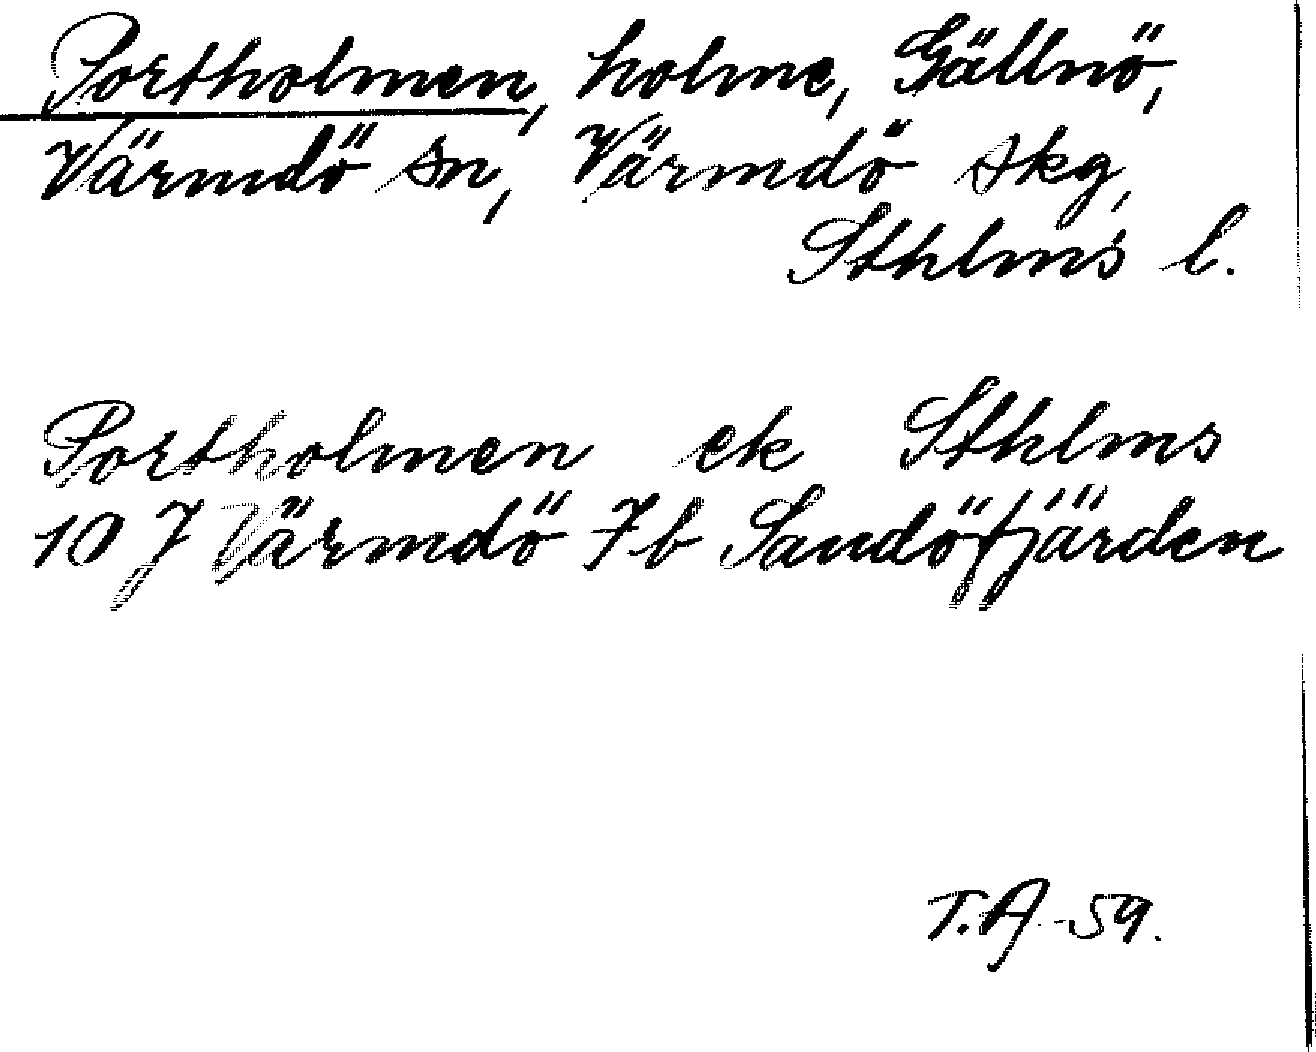 Portholmen, holme, Gällnö,
Värmdö sn, Värmdö skg,
Sthlms l.
Portholmen ek Sthlms
10 J Värmdö 7b Sandöfjärden
T.A -59.